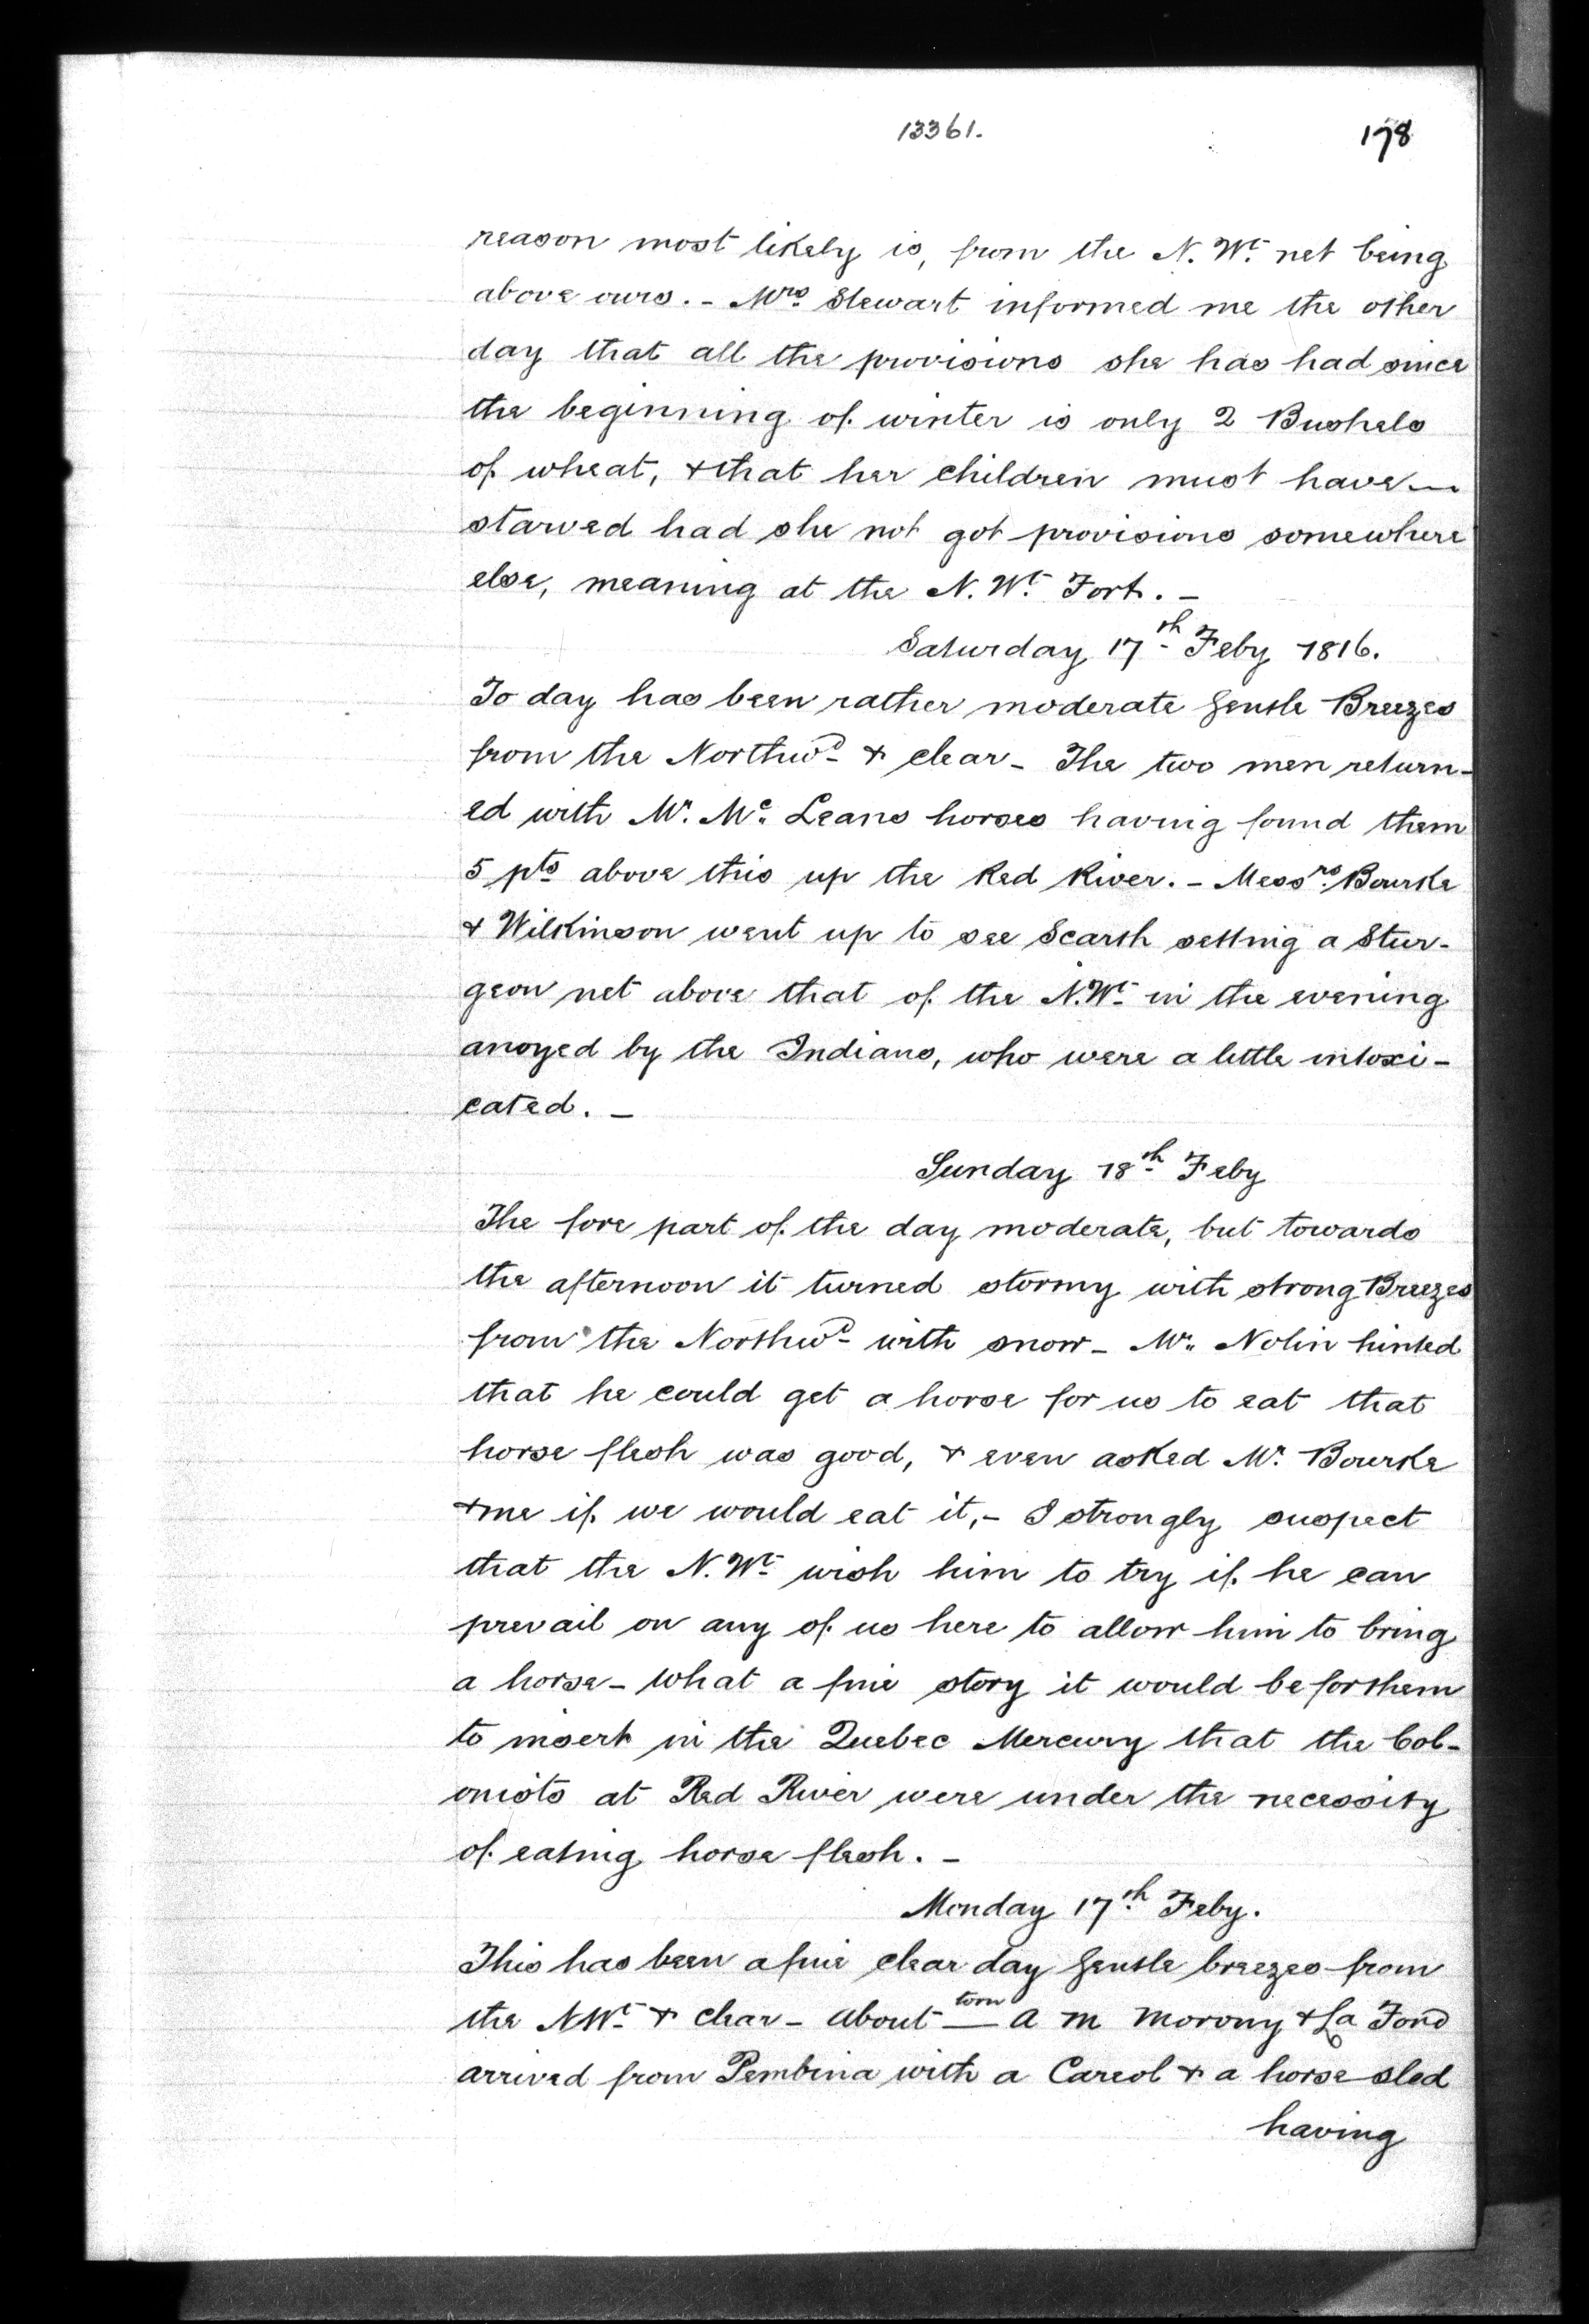 13361.
178
reason most likely is, from the N. Wt. net being
above ours. - Mrs. Stewart informed me the other
day that all the provisions she has had since
the beginning of winter is only 2 Bushels
of wheat, & that her children must have
starved had she not got provisions somewhere
else, meaning at the N. Wt. Fort. -
Saturday 17th Feby 1816.
To day has been rather moderate Gentle Breezes
from the Northwd & clear - The two men return-
ed with Mr. Mc. Leans horses having found them
5 pts above this up the Red River. - Messrs. Bourke
& Wilkinson went up to see Scarth setting a Stur-
geon net above that of the N. Wt. in the evening
anoyed by the Indians, who were a little intoxi-
cated. -
Sunday 18th Feby
The fore part of the day moderate, but towards
the afternoon it turned stormy with strong Breezes
from the Northwd with snow - Mr. Nolin hinted
that he could get a horse for us to eat that
horse flesh was good, & even asked Mr. Bourke
& me if we would eat it, - I strongly suspect
that the N. Wt. wish him to try if he can
prevail on any of us here to allow him to bring
a horse - what a fine story it would be for them
to insert in the Quebec Mercury that the Col-
onists at Red River were under the necessity
of eating horse flesh. -
Monday 17th Feby.
This has been a fine clear day Gentle breezes from
the N Wt. & clear - about torn — a m Morony & La Fond
arrived from Pembina with a Careol & a horse sled
having